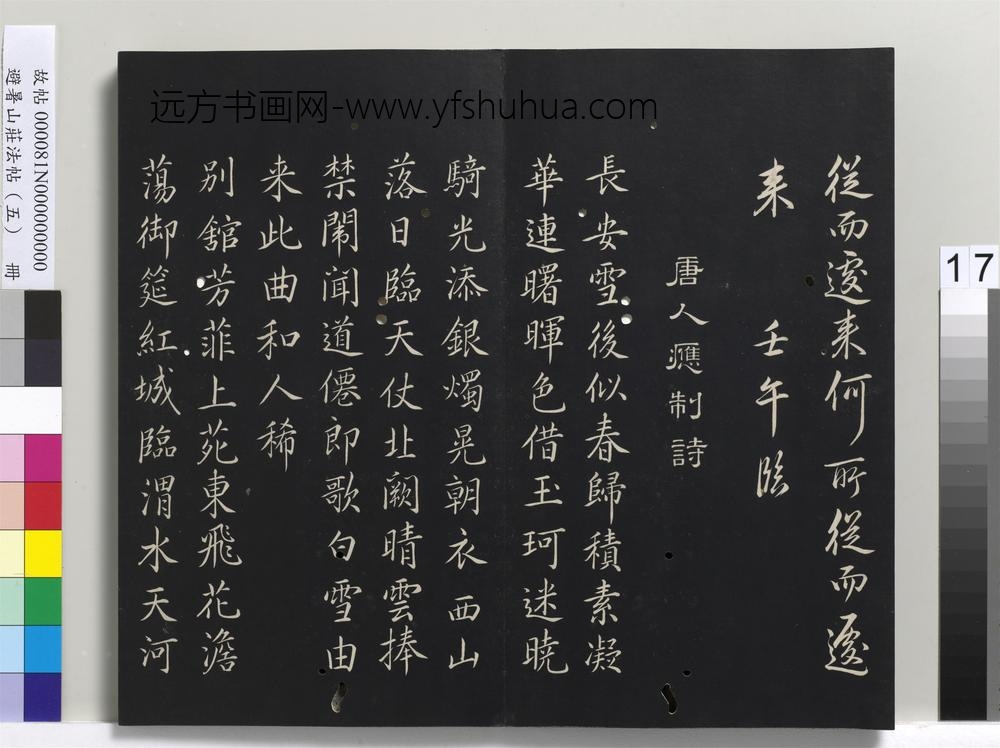 远方书画网-www.yfshuhua.com
從而遽来何所從而遽
来 壬午臨
唐人應制詩
長安雪後似春歸積素凝
華連曙暉色借玉珂迷曉
騎光添銀燭晃朝衣西山
落日臨天仗北闕晴雲捧
禁闈聞道僊郎歌白雪由
来此曲和人稀
別舘芳菲上苑東飛花澹
蕩御筵紅城臨渭水天河
故帖000081N000000000
避暑山莊法帖（五） 冊
17